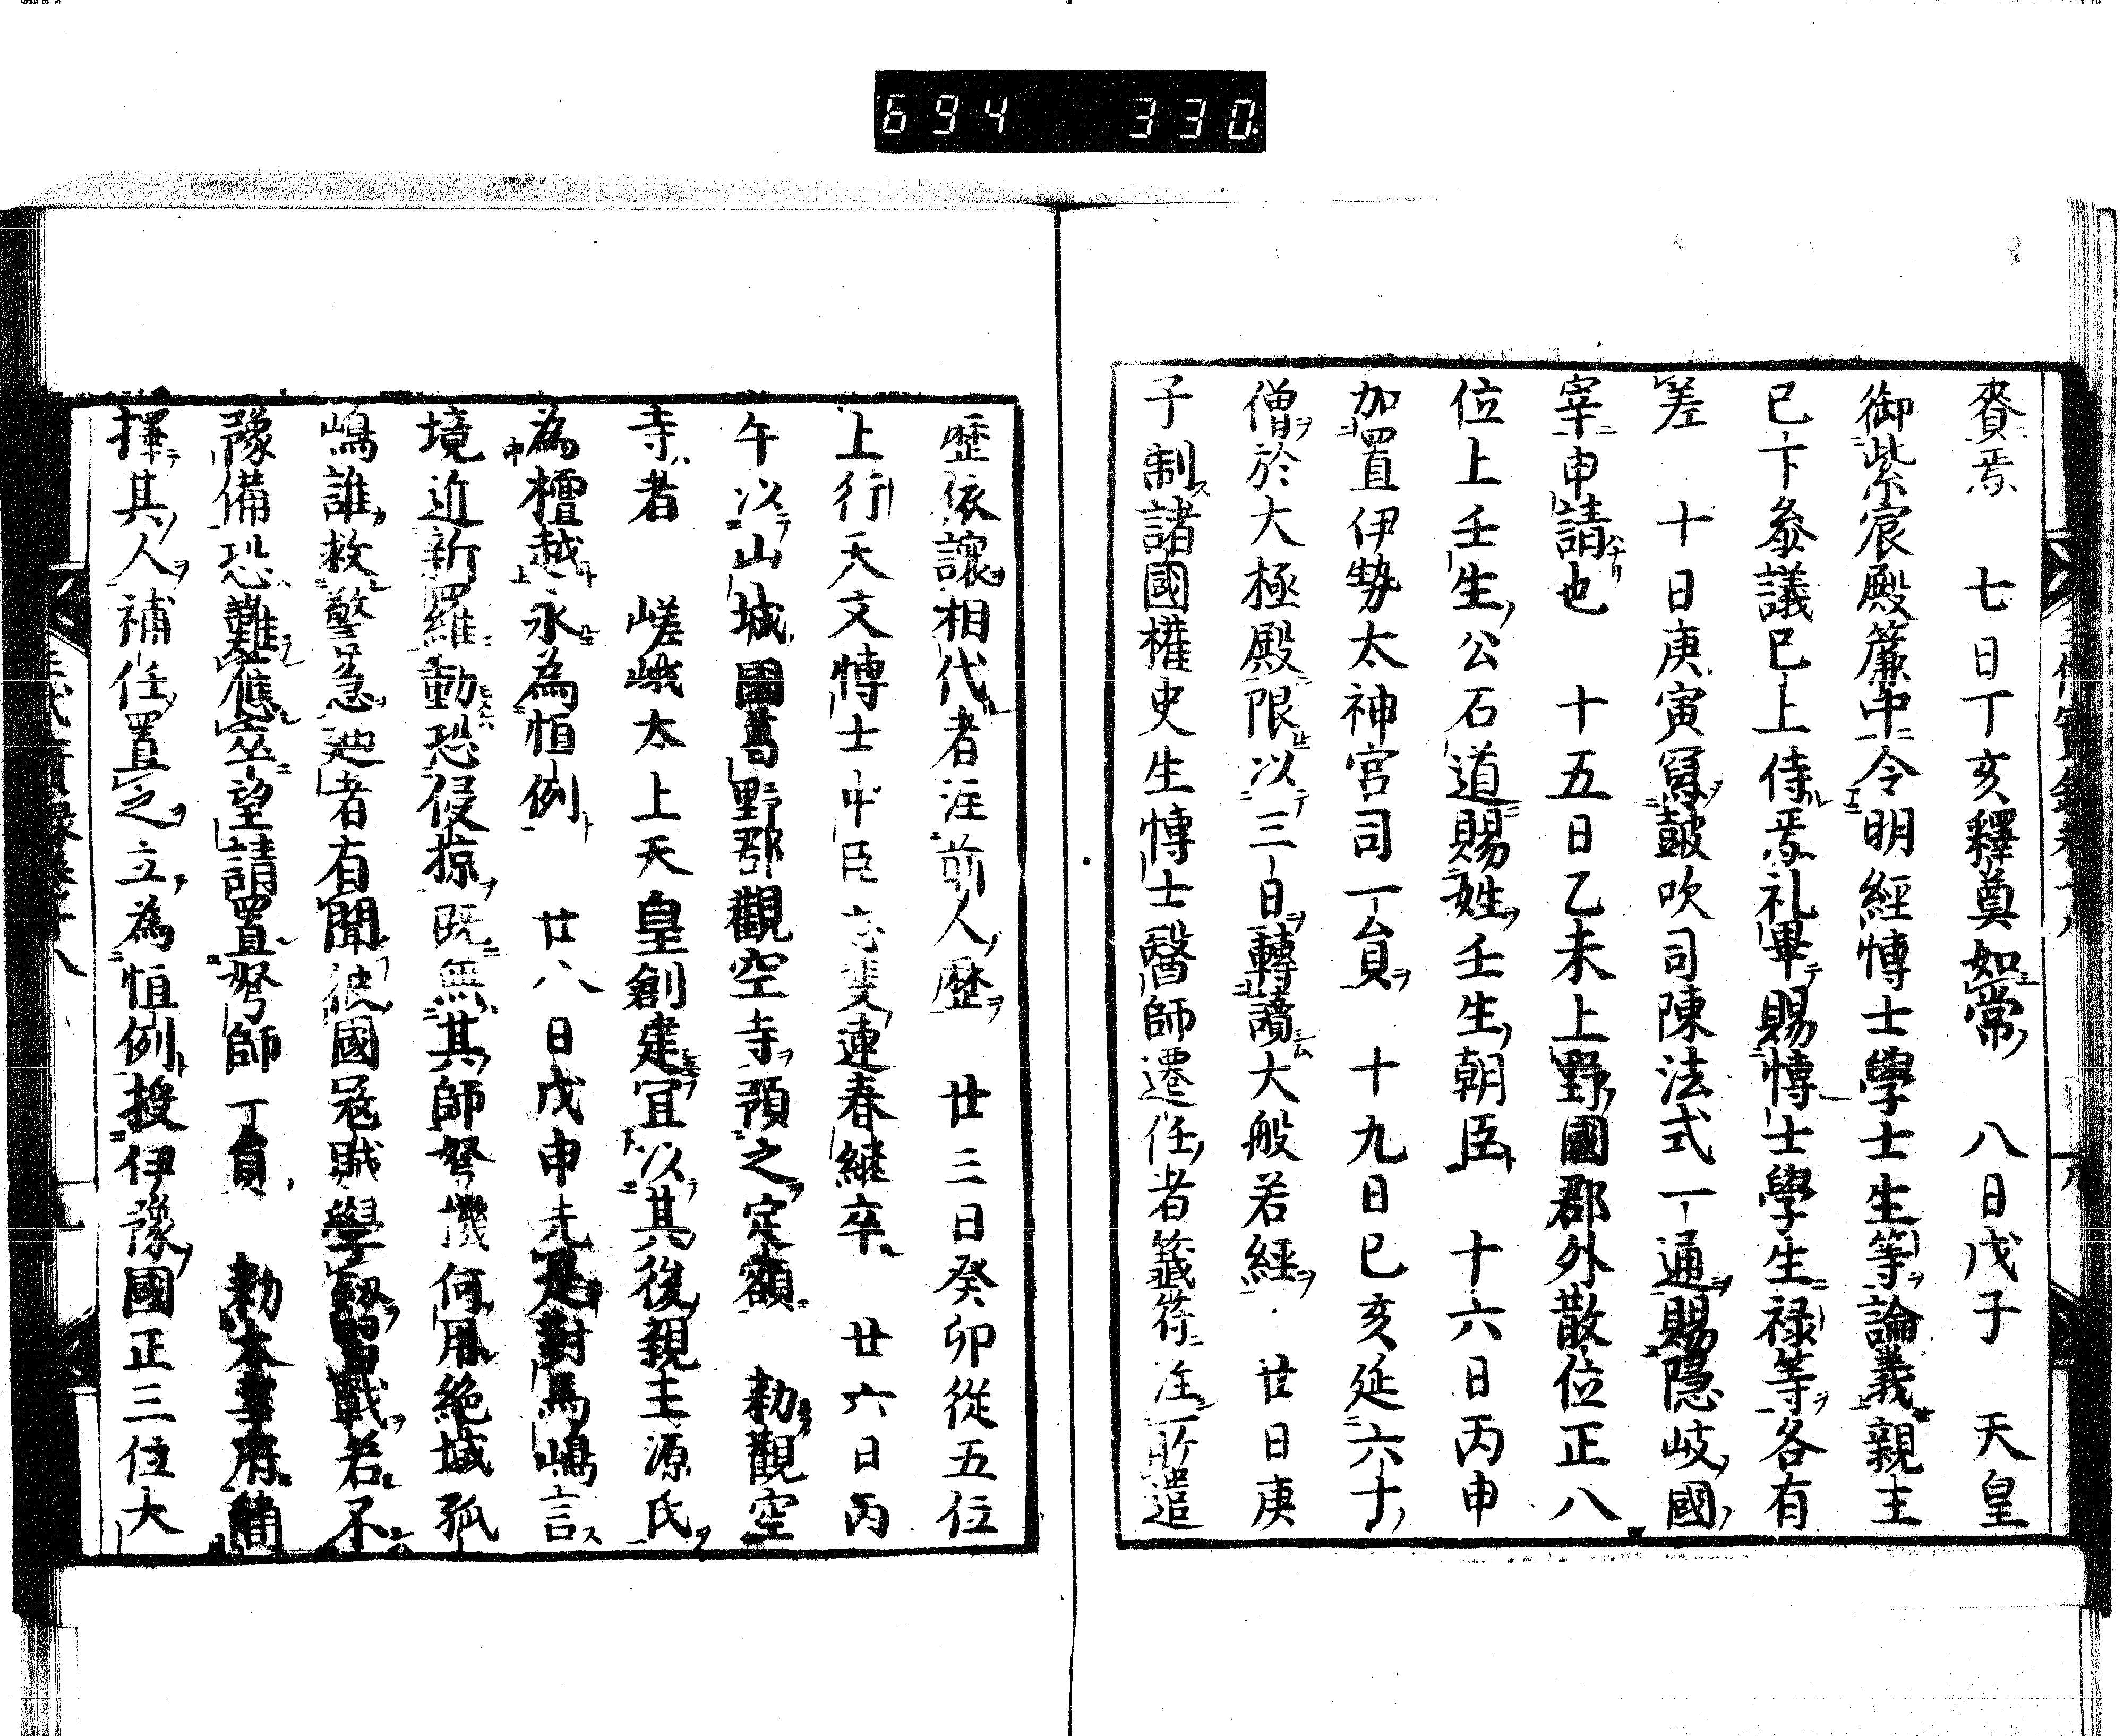 694 330
賚焉 七日丁亥釋奠如常 八日戊子 天皇
御紫宸殿簾中令明經愽士學士生等論義親王
已下叅議已上侍焉礼畢賜愽士學生禄等各有
差 十日庚寅寫鼓吹司陳法式一通賜隱岐國
宰申請也 十五日乙未上野國郡外散位正八
位上壬生公石道賜姓壬生朝臣 十六日丙申
加置伊勢太神宮司一員 十九日己亥延六十
僧於大極殿限以三日轉讀大般若經 廿日庚
子制諸國權史生愽士醫師遷任者籤符注所遣
歴依讓相代者注前人歴 廿三日癸卯從五位
上行天文愽士中臣志斐連春継卒 廿六日丙
午以山城國葛野郡觀空寺預之定額 勑觀空
寺者 嵯峨太上天皇創建冝以其後親王源氏
為檀越永為恒例 廿八日戊申先是對馬嶋言
境近新羅動恐侵掠既無其師弩機何用絶域孤
嶋誰救警急迊者有聞彼國寇賊學習戰若不
豫備恐難應卒望請置弩師一員 勑太宰府簡
擇其人補任置之立為恒例授伊豫國正三位大